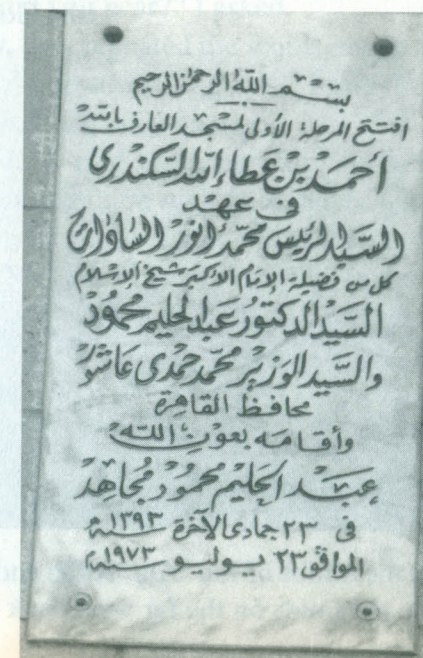 بسم الله الرحمن الرحيم
افتتح المرحلة الأولى لمسجد العارف بالله
أحمد بن عطاء الله السكندرى
فى عهد
السيد الرئيس محمد أنور السادات
كل من فضيلة الإمام الأكبر شيخ الإسلام
السيد الدكتور عبد الحليم محمود
والسيد الوزير محمد حمدى عاشور
محافظ القاهرة
وأقامه بعون الله
عبد الحليم محمود مجاهد
فى ٢٣ جمادى الآخرة سنة ١٣٩٣ هـ
الموافق ٢٣ يوليو سنة ١٩٧٣ م